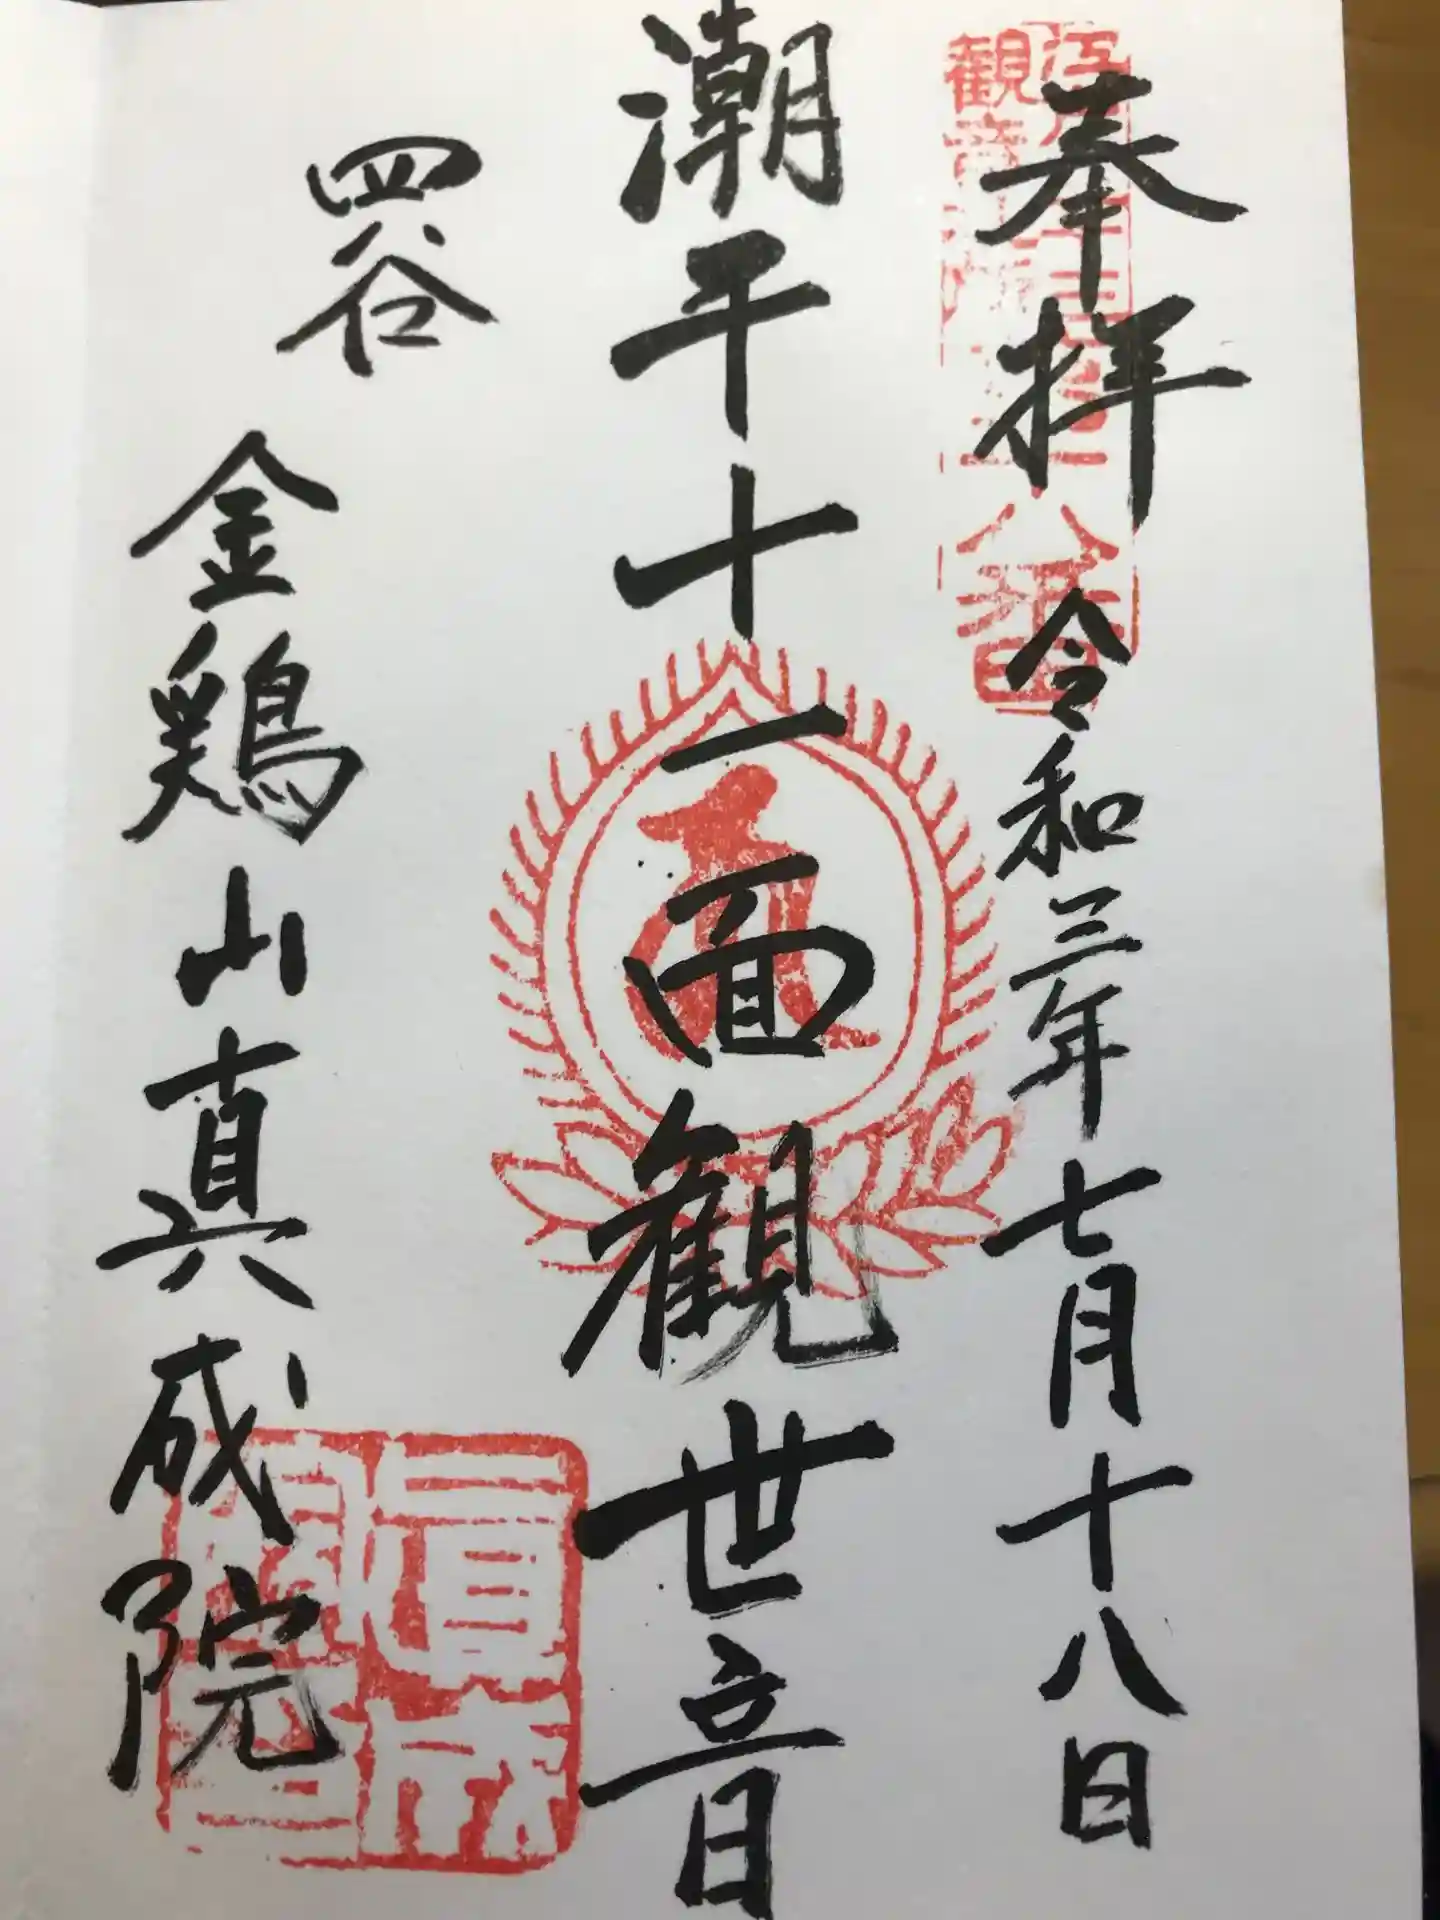 奉拝 令和三年七月十八日
潮干十一面観世音
四谷
金鶏山真成院